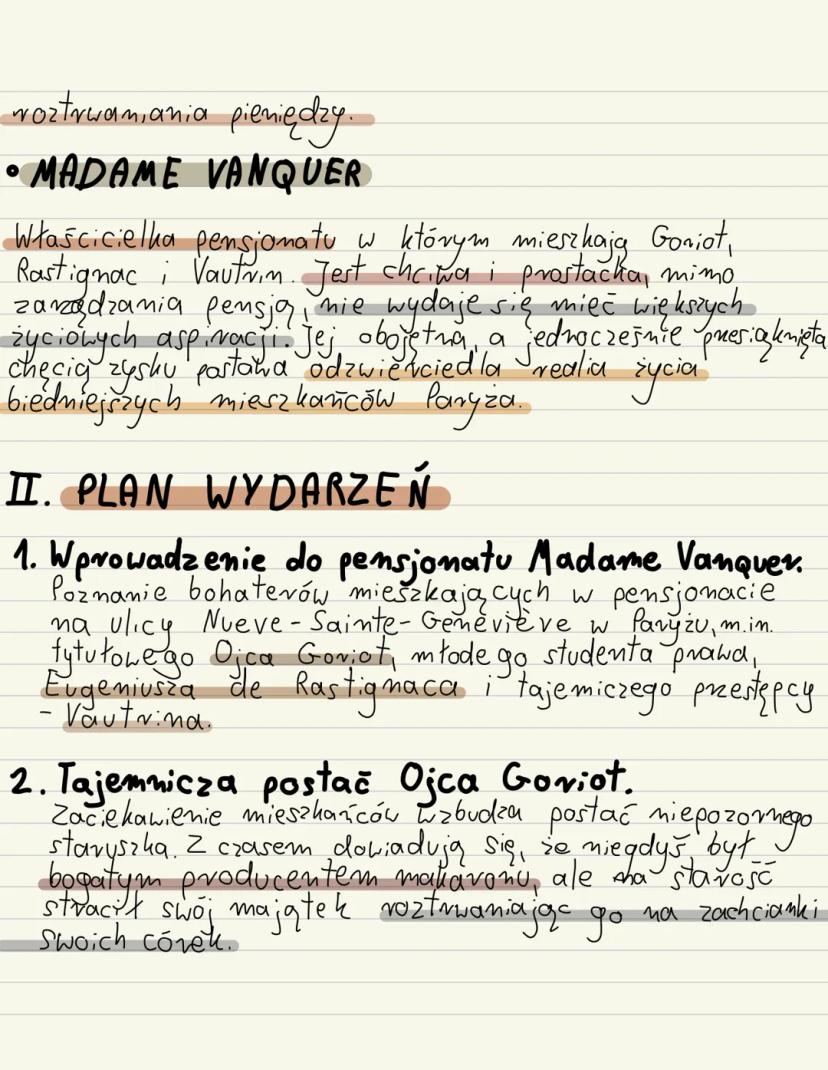 roztrwaniania pieniędzy.
• MADAME VANQUER
Właścicielka pensjonatu w którym mieszkają Goriot,
Rastignac i Vautrin. Jest chciwa i prostacka, mimo
zarządzania pensją, nie wydaje się mieć większych
życiowych aspiracji. Jej obojętna, a jednocześnie przesiąknięta
chęcią zysku postawa odzwierciedla realia życia
biedniejszych mieszkańców Paryża.
II. PLAN WYDARZEŃ
1. Wprowadzenie do pensjonatu Madame Vanquer.
Poznanie bohaterów mieszkających w pensjonacie
na ulicy Nueve-Sainte-Geneviève w Paryżu, m.in.
tytułowego Ojca Goriot, młodego studenta prawa,
Eugeniusza de Rastignaca i tajemiczego przestępcy
- Vautrina.
2. Tajemnicza postać Ojca Goriot.
Zaciekawienie mieszkańców wzbudza postać niepozornego
staruszka. Z czasem dowiadują się, że niegdyś był
bogatym producentem makaronu, ale na starość
stracił swój majątek roztrwaniając go na zachcianki
swoich córek.